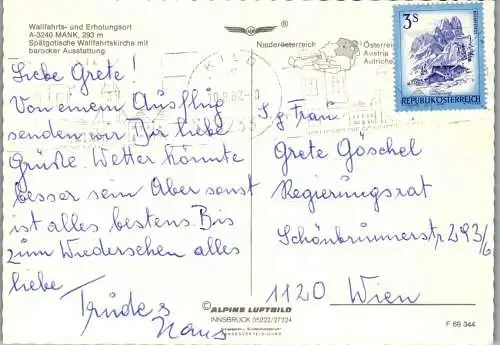 Wallfahrts- und Erholungsort
A-3240 MANK, 293 m
Spätgotische Wallfahrtskirche mit
barocker Ausstattung
®
Niederösterreich
Österreich
Austria
Autriche
3S
REPUBLIK ÖSTERREICH
Liebe Grete!
Von einem Ausflug
senden wir Dir liebe
Grüße. Wetter könnte
besser sein Aber sonst
ist alles bestens. Bis
zum Wiedersehen alles
liebe
Trude
Hans
S.g. Frau
Grete Göschel
Regierungsrat
Schönbrunnerstr. 293/6
1120 Wien
© ALPINE LUFTBILD
INNSBRUCK 05222/27224
F 69 344